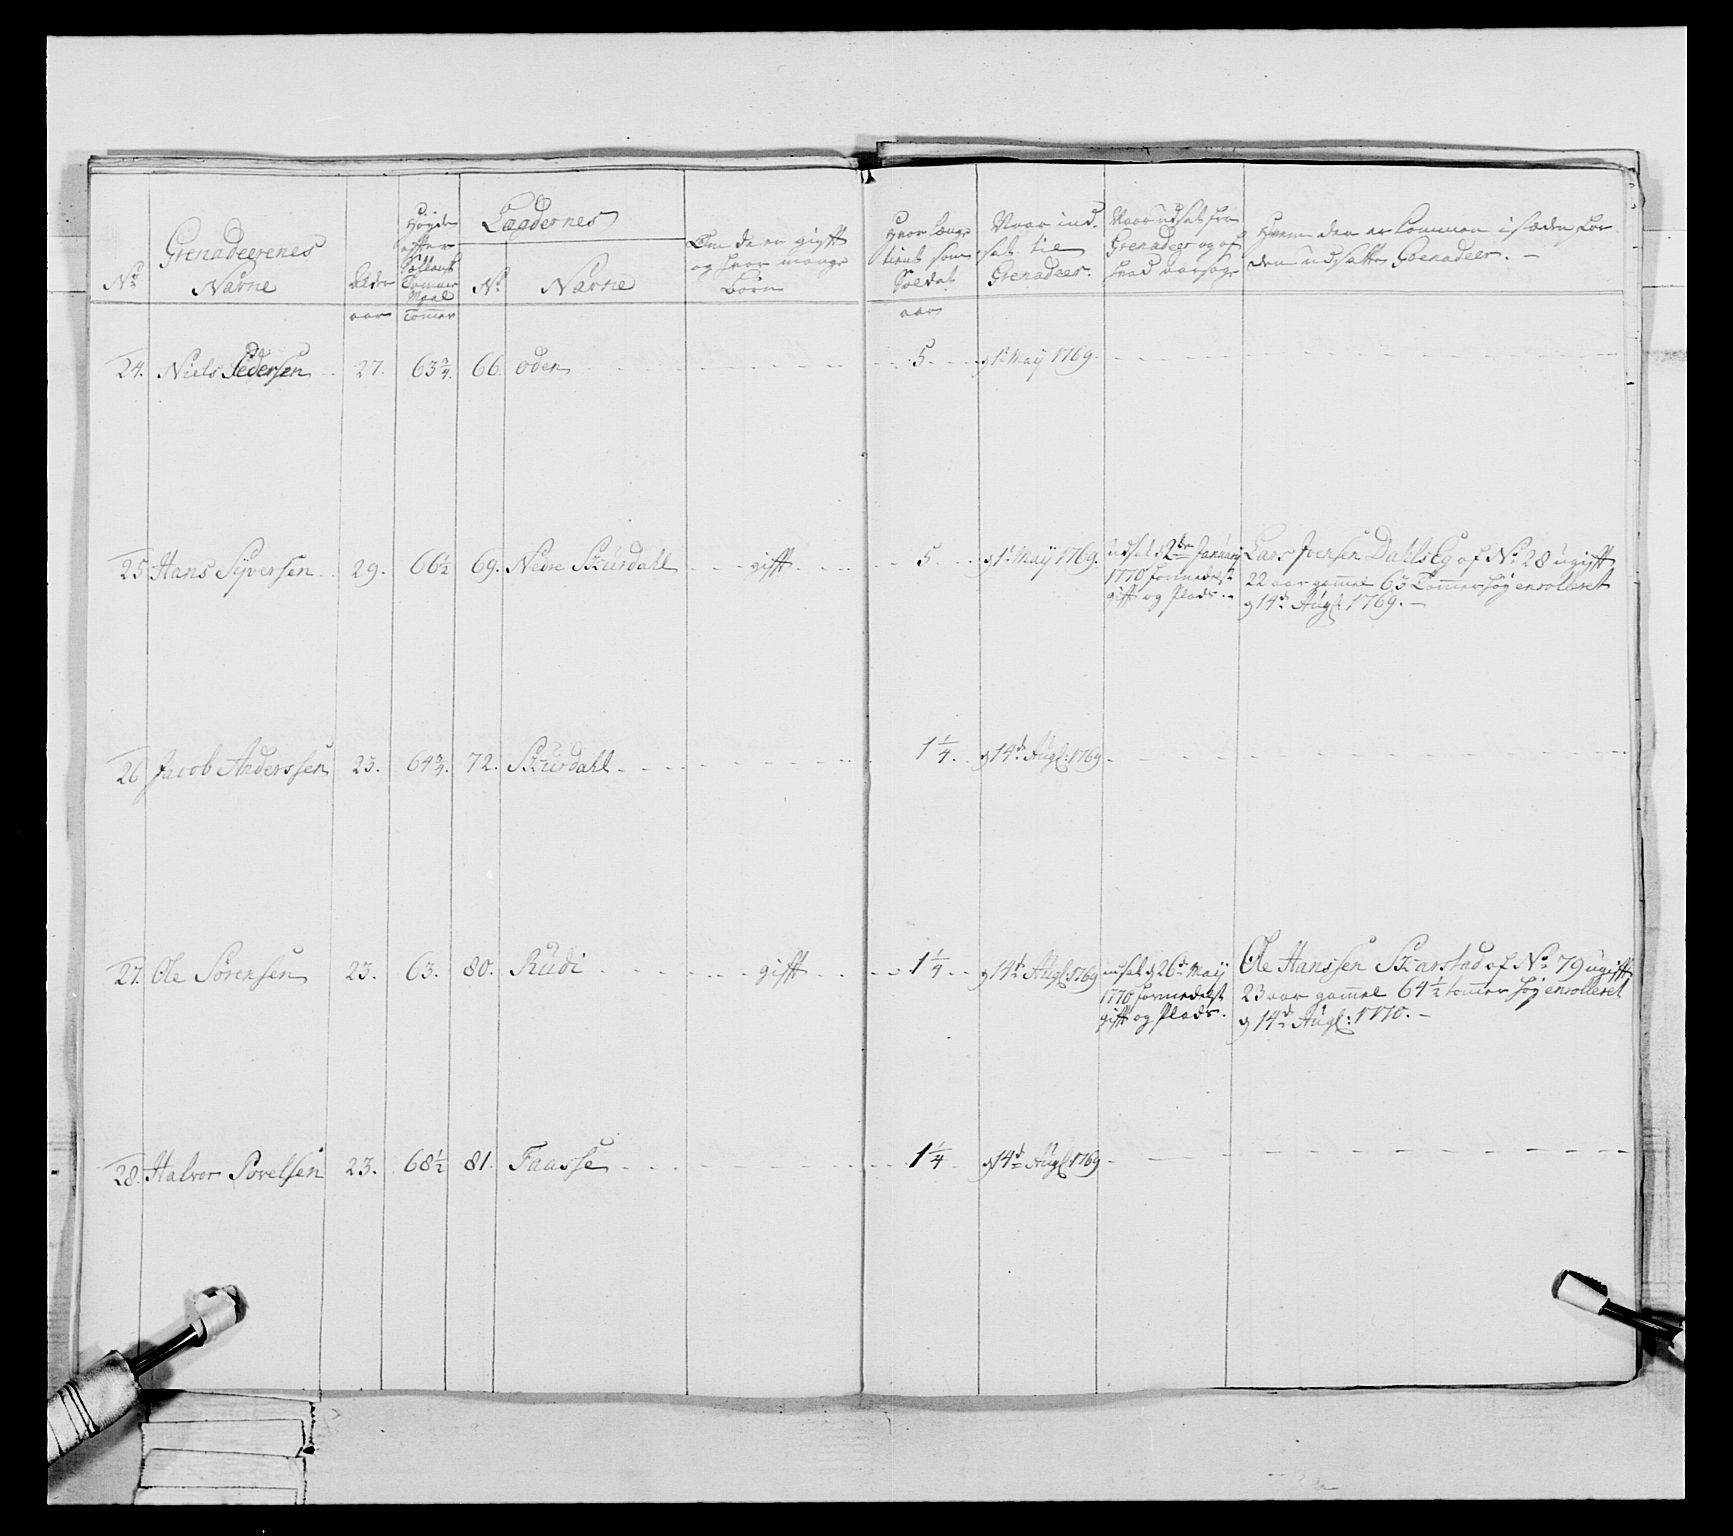 No
Grenadeerenes
Navne
Alder
Høyde
efter
Sællansk
Tommer
Maal
Lægdernes
No
Navne
Om de er gifft
og hvor mange
Børn
Hvor længe
tient som
Soldat
Naar ind-
sat til
Grenadeer.
Naar udsat fra
Grenadeer og af
hvad aarsage
Hvem der er kommen i stæden for
den udsatte Grenadeer. -
aar
Tommer
aar
24. Niels Pedersen 27. 63 3/4. 66. oden 5. d 1t Maÿ 1769.
25 Hans Sÿversen 29. 66 1/2 69. Nedre Skurdahl gifft 5. d 1t Maÿ 1769.
udsat d 2den Januarÿ
1770 formedelst
gifft og Plads. -
Lars Iversen Dahlseg af No 28 ugifft
22 aar gammel 63 Tommer høÿ enrolleret
d 14de Augl 1769. -
26 Jacob Anderssen 23. 64 3/4. 72. Skurdahl 1 1/4. d 14de Augl: 1769
27. Ole Sørensen 23. 63. 80. Rudi gifft 1 1/4 d 14de Augl: 1769
udsat d 26de Maÿ
1770 formedelst
gifft og Plads.
Ole Hanssen Skarstad af No 79 ugifft
23 aar gammel 64 1/2 tommer høÿ enrolleret
d 14de Augl: 1770. -
28. Halvor Povelsen 23. 68 1/2 81. Faasse 1 1/4 d 14de Augl 1769